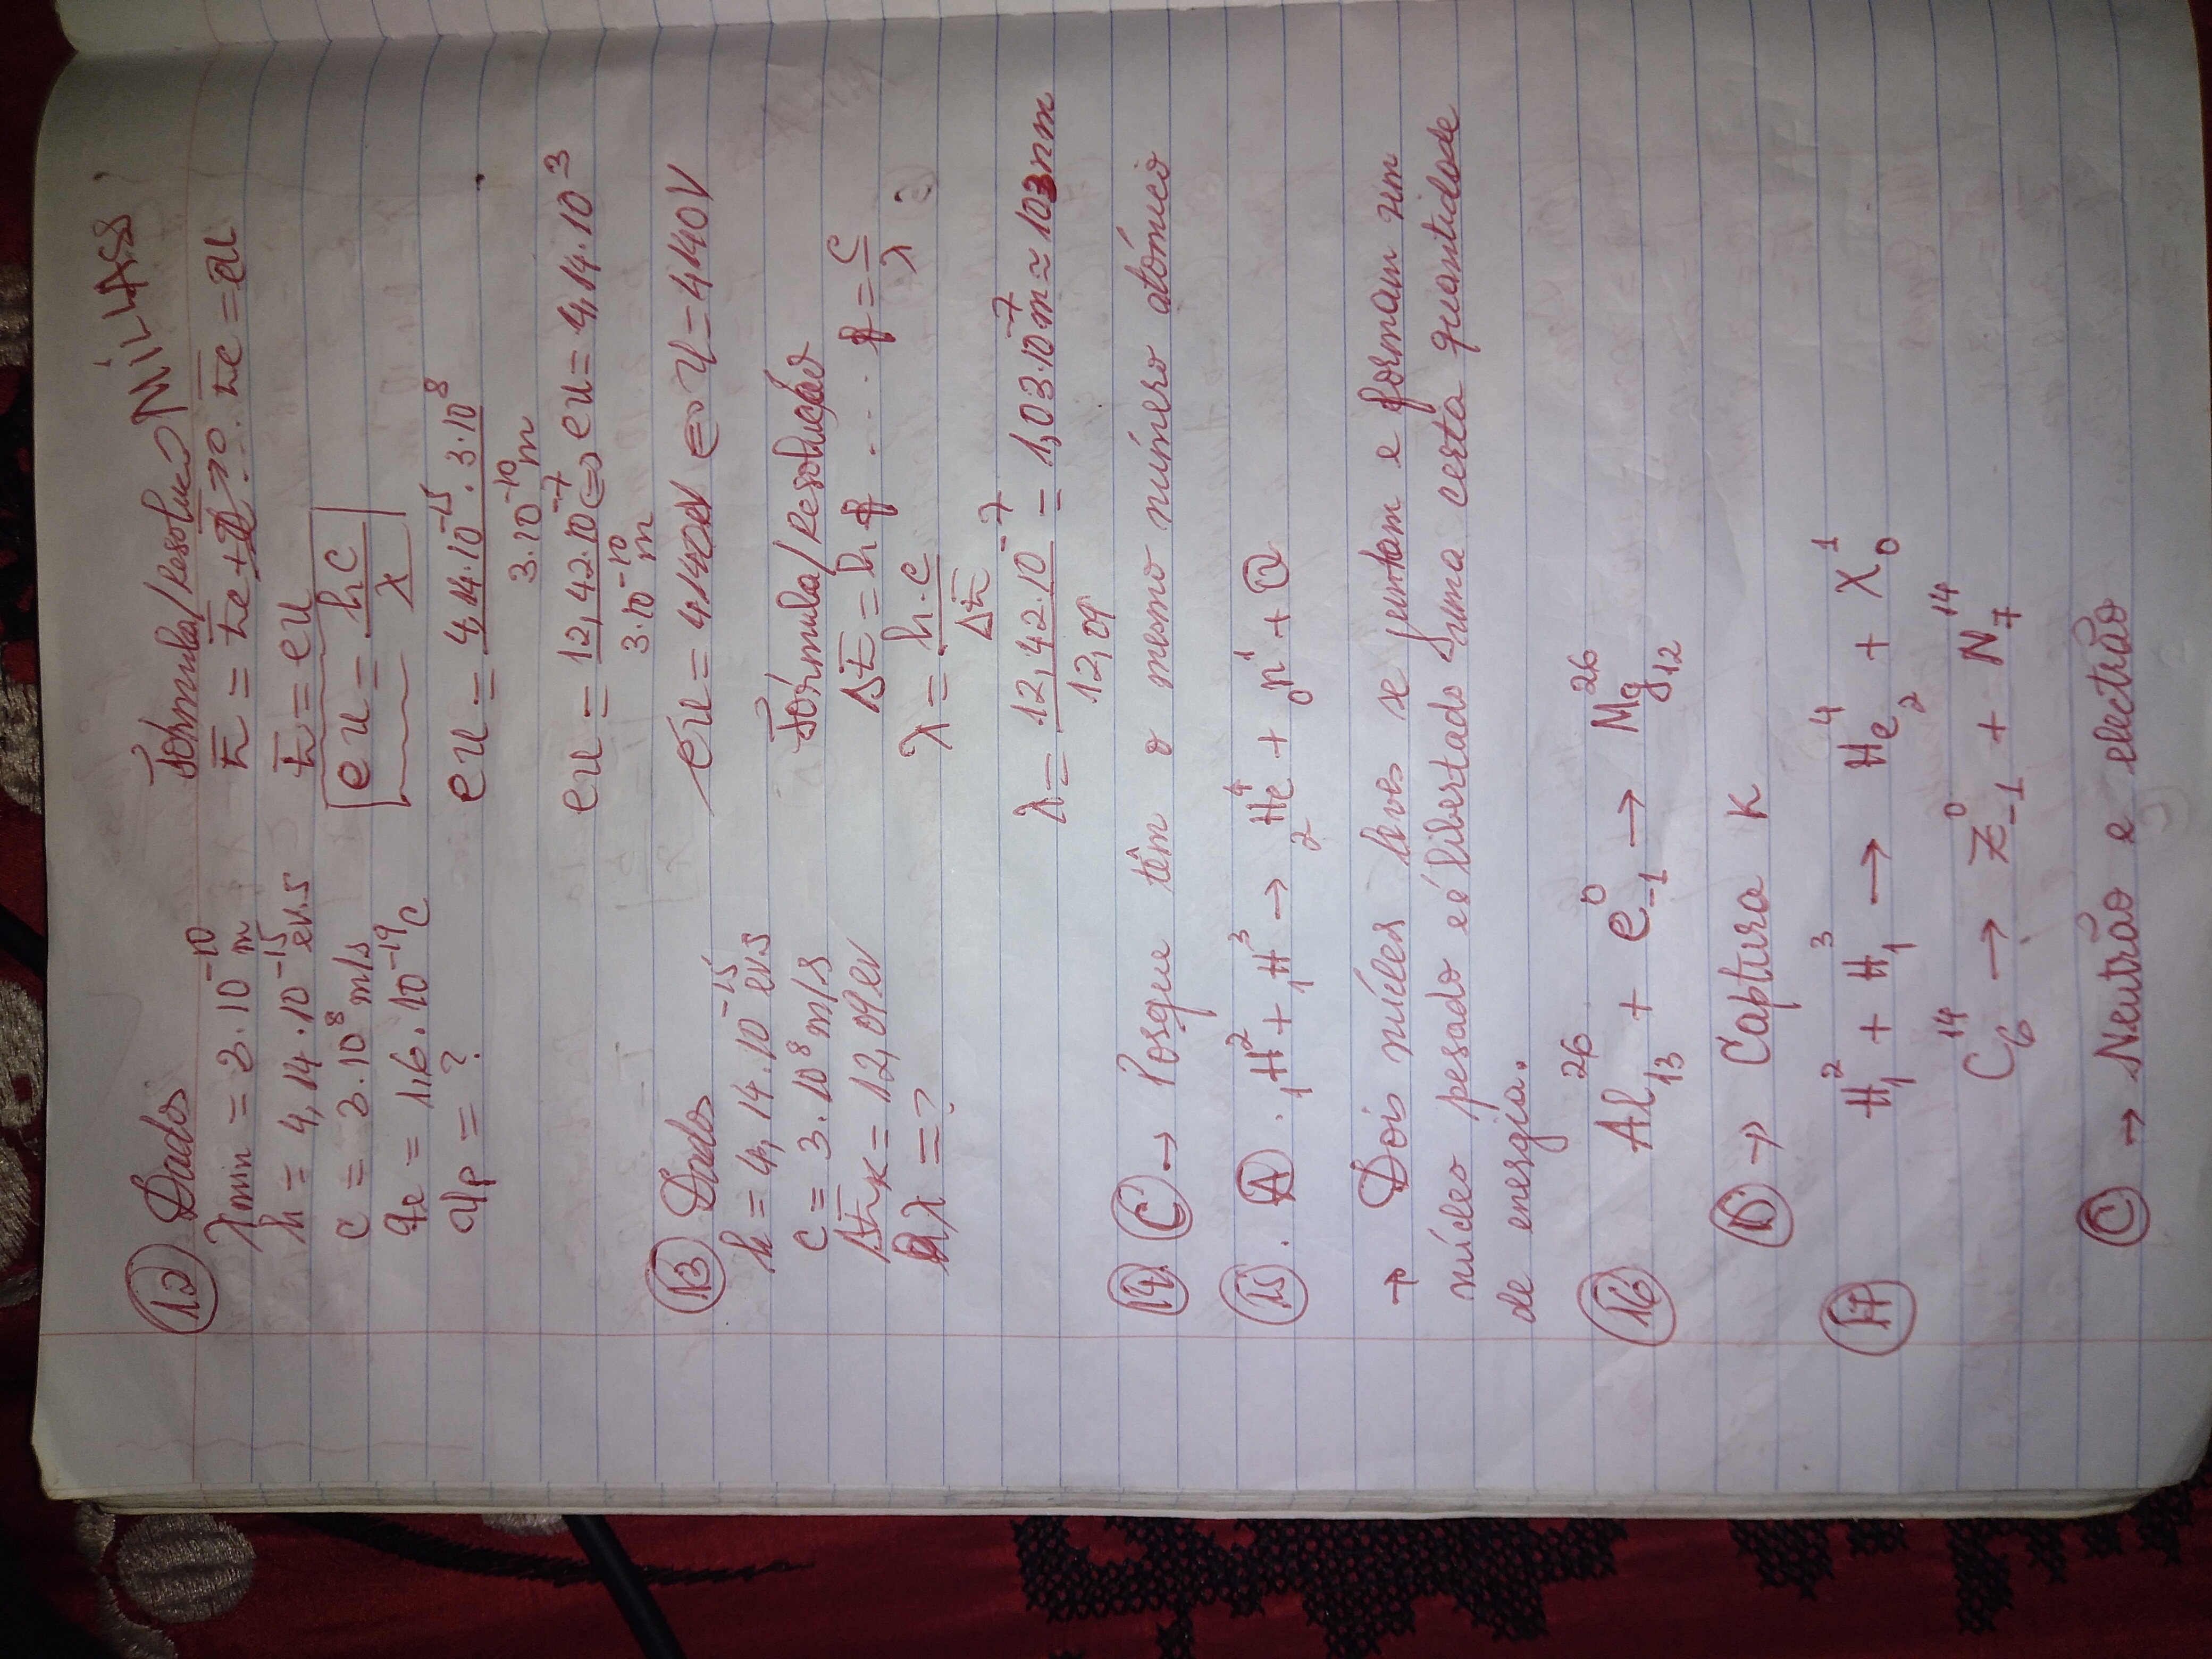 12 Dados
λmin = 3.10⁻¹⁰ m
h = 4,14.10⁻¹⁵ eV.s
c = 3.10⁸ m/s
qe = 1,6.10⁻¹⁹ C
Up = ?
Fórmula/Resolução MILLASS
E = Ee + 0 Ee = eU
E = eU
eU = hc/λ
eU = 4,14.10⁻¹⁵.3.10⁸ / 3.10⁻¹⁰ m
eU = 12,42.10⁻⁷ / 3.10⁻¹⁰ m ⇔ eU = 4,14.10³
eU = 4,140eV ⇔ U = 4,140V
13 Dados
h = 4,14.10⁻¹⁵ eV.s
c = 3.10⁸ m/s
ΔEK = 12,09 eV
λ = ?
Fórmula/Resolução
ΔE = h f .... f = c/λ
λ = h.c/ΔE
λ = 12,42.10⁻⁷ / 12,09 = 1,03.10⁻⁷ m ≈ 103nm
14 C → Posque têm o mesmo número atómico
15. A. ₁H² + ₁H³ → ₂He⁴ + ₀n¹ + Q
→ Dois núcleos leves se juntam e formam um
núcleo pesado e é libertado uma certa quantidade
de energia.
16 Al₁₃²⁶ + e₋₁⁰ → Mg₁₂²⁶
D → Captura K
17 H₁² + H₁³ → He₂⁴ + X₀¹
C₆¹⁴ → Z₋₁⁰ + N₇¹⁴
C → Neutrão e electrão